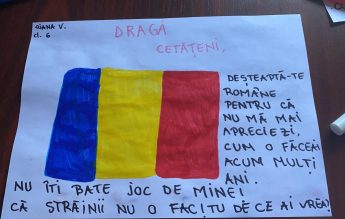 DIANA V.
cl. 6
DRAGĂ
CETĂȚENI,
DEȘTEAPTĂ-TE
ROMÂNE
PENTRU CĂ
NU MĂ MAI
APRECIEZI,
CUM O FĂCEAI
ACUM MULȚI
ANI.
NU ÎȚI BATE JOC DE MINE!
CĂ STRĂINII NU O FAC, TU DE CE AI VREA?